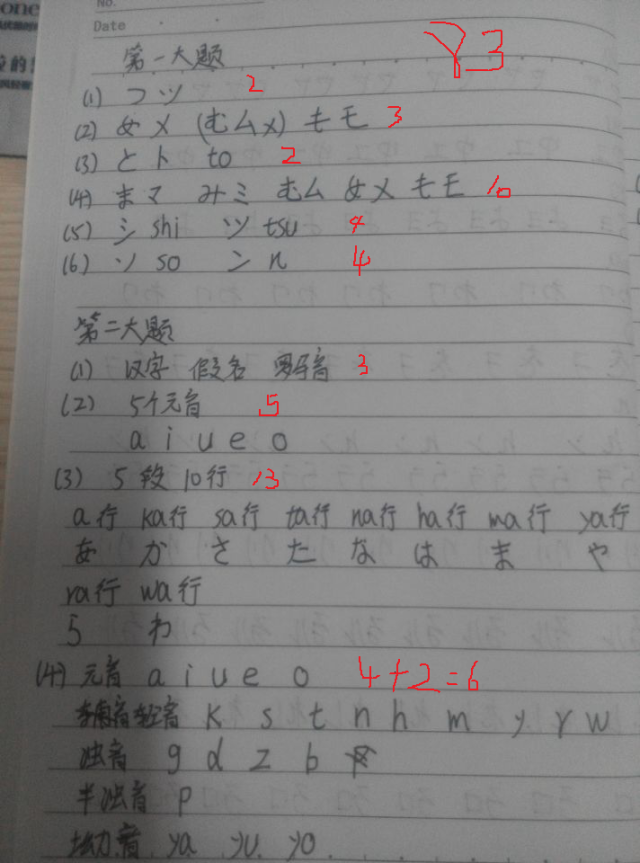 one
No.
Date
Y3
第一大题
(1) つツ 2
(2) 女メ (むムメ) もモ 3
(3) とト to 2
(4) まマ みミ むム 女メ もモ 10
(5) シ shi ツ tsu 4
(6) ソ so ン n 4
第二大题
(1) 汉字 假名 罗马音 3
(2) 5个元音 5
a i u e o
(3) 5段 10行 13
a行 ka行 sa行 ta行 na行 ha行 ma行 ya行
あ か さ た な は ま や
ra行 wa行
ら わ
(4) 元音 a i u e o 4+2=6
k s t n h m y r w
浊音 g d z b
半浊音 p
拗音 ya yu yo